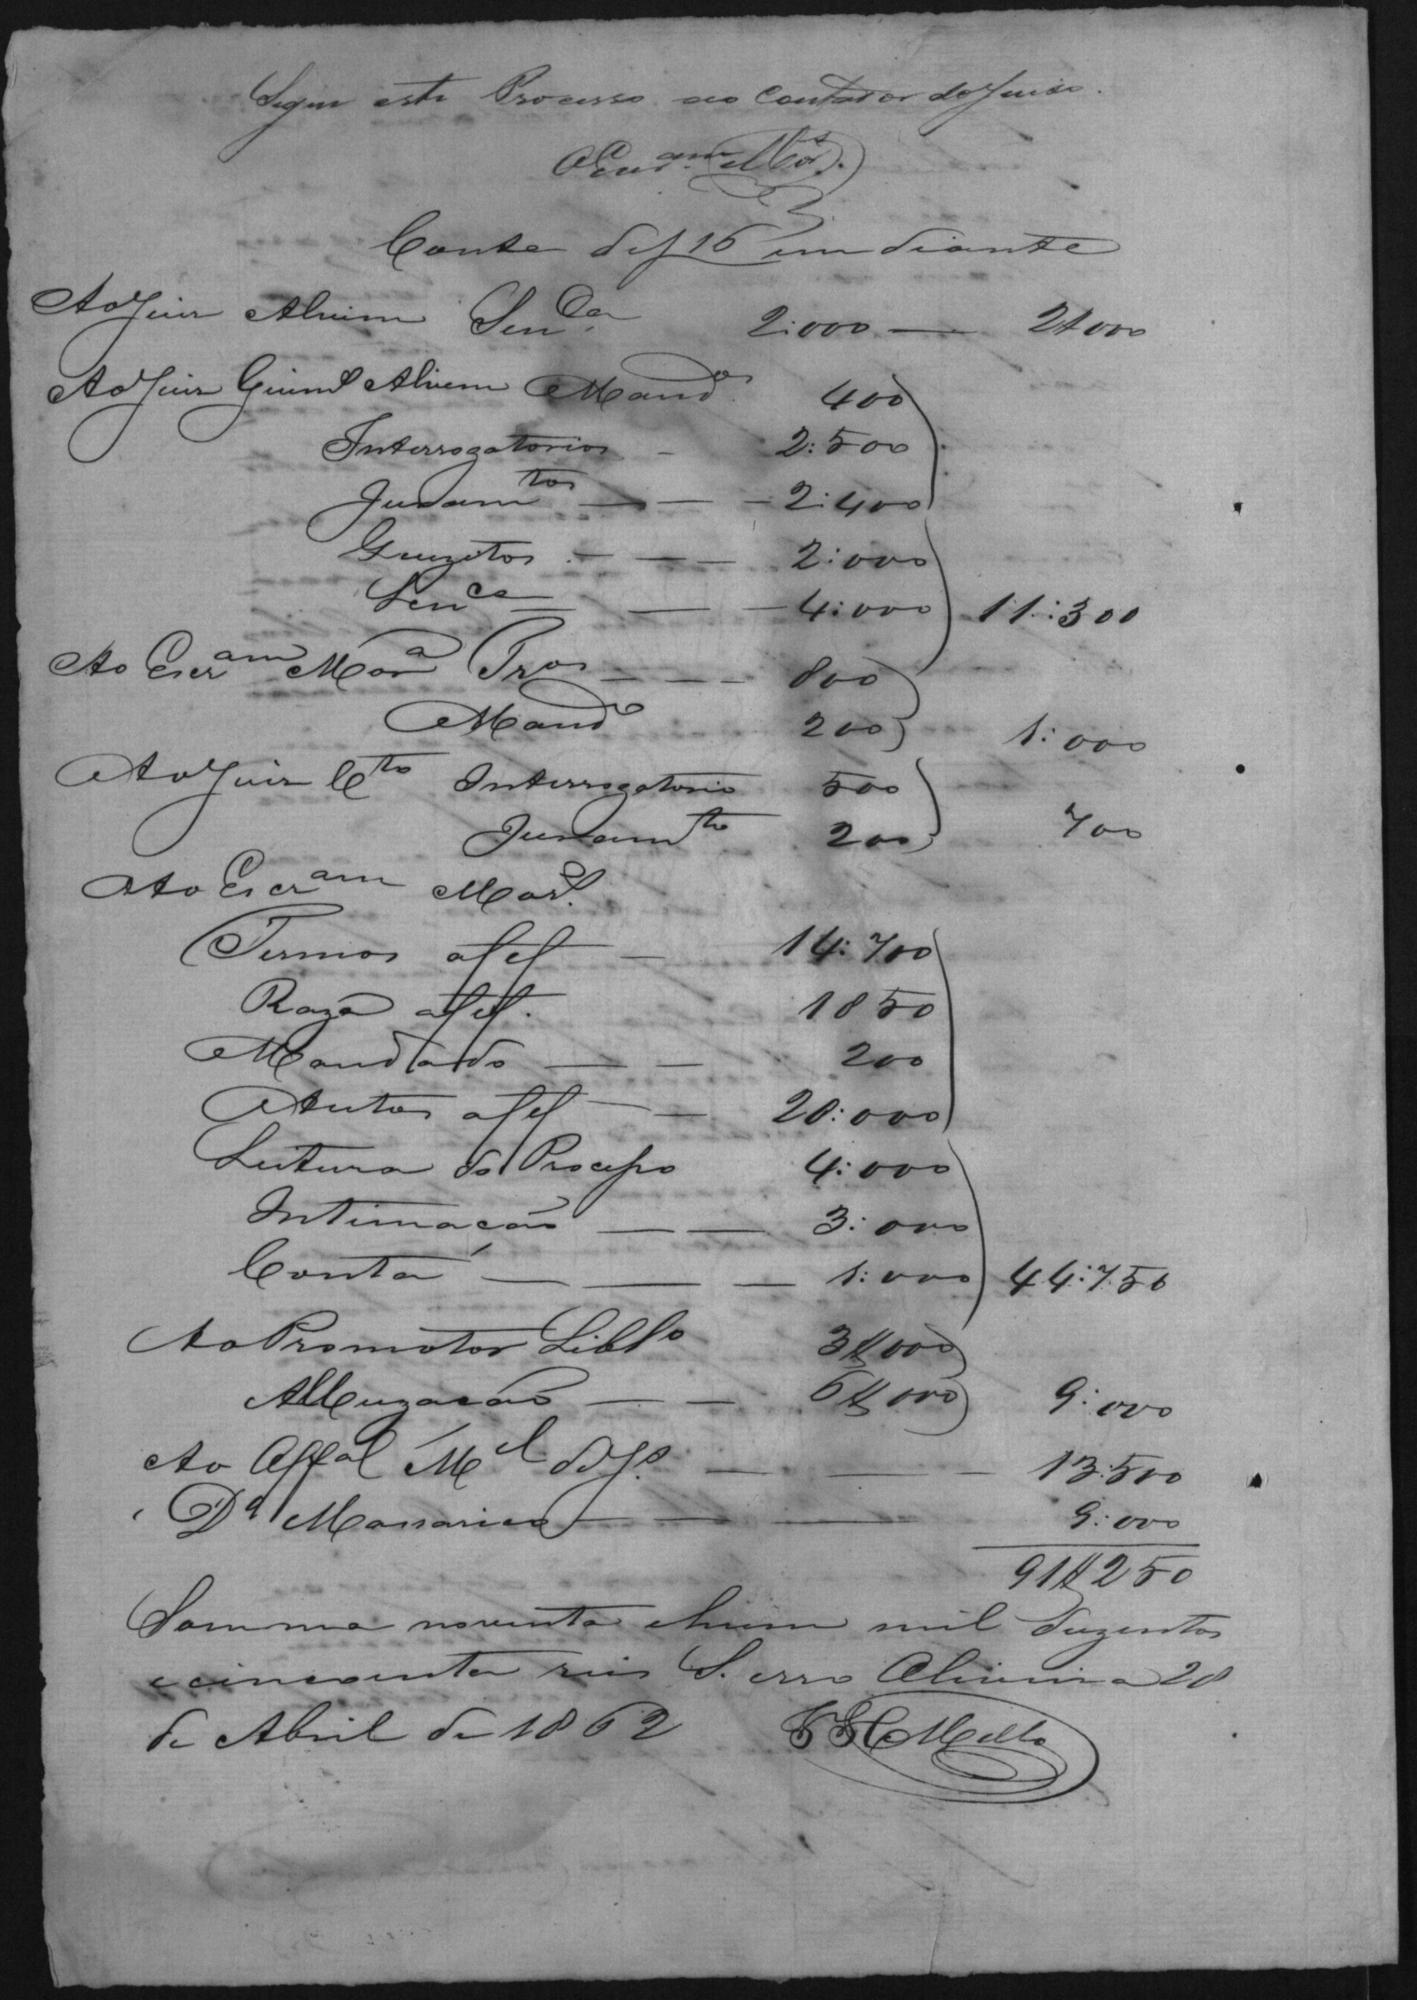 Segue este Processo ao Contador do Juiso.
O Escr.am
Conta de f 16 em diante
Ao Juis Alvim Sen.ça 2:000 — 2$000
Ao Juis Alvim Mand.º 400
Interrogatorios - 2:500
Juram.tos — — — 2:400
Quezitos — — — 2:000
Sen.ça — — — 4:000 11:300
Ao Escr.am Mor.a Tros — — — 800
Mand.º 200 1:000
Ao Juis C.to Interrogatorio 500
Juram.to 200 700
Ao Escr.am Mor.ª
Termos af e f — 14:700
Raza af e f. 1850
Mandado — — 200
Autos af e f — — 20:000
Leitura do Processo 4:000
Intimação — — 3:000
Conta — — — 1:000 44:750
Ao Promotor Lib.lo 3$000
Accuzacão — — 6$000 9:000
Ao Off.al M.el — — — 13:500
D.º — — — 9:000
91$250
Somma noventa e hum mil duzentos
e cincoenta reis S. erro 28
de Abril de 1862 Mello